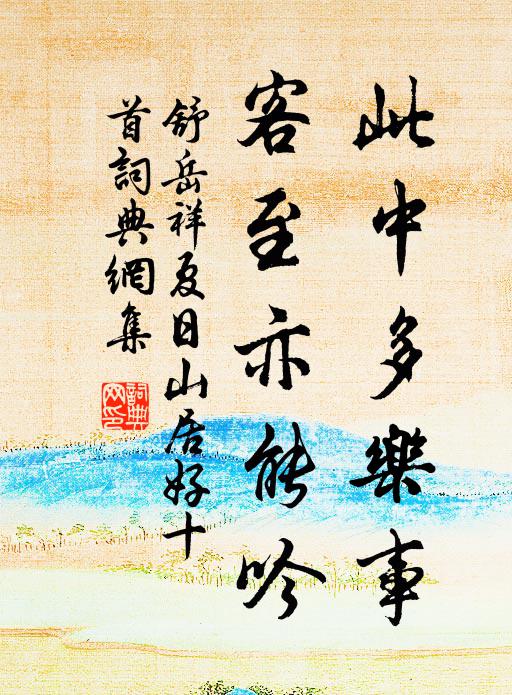 此中多樂事
客至亦能吟
舒岳祥夏日山居好十
首詞典網集
詞典
网印